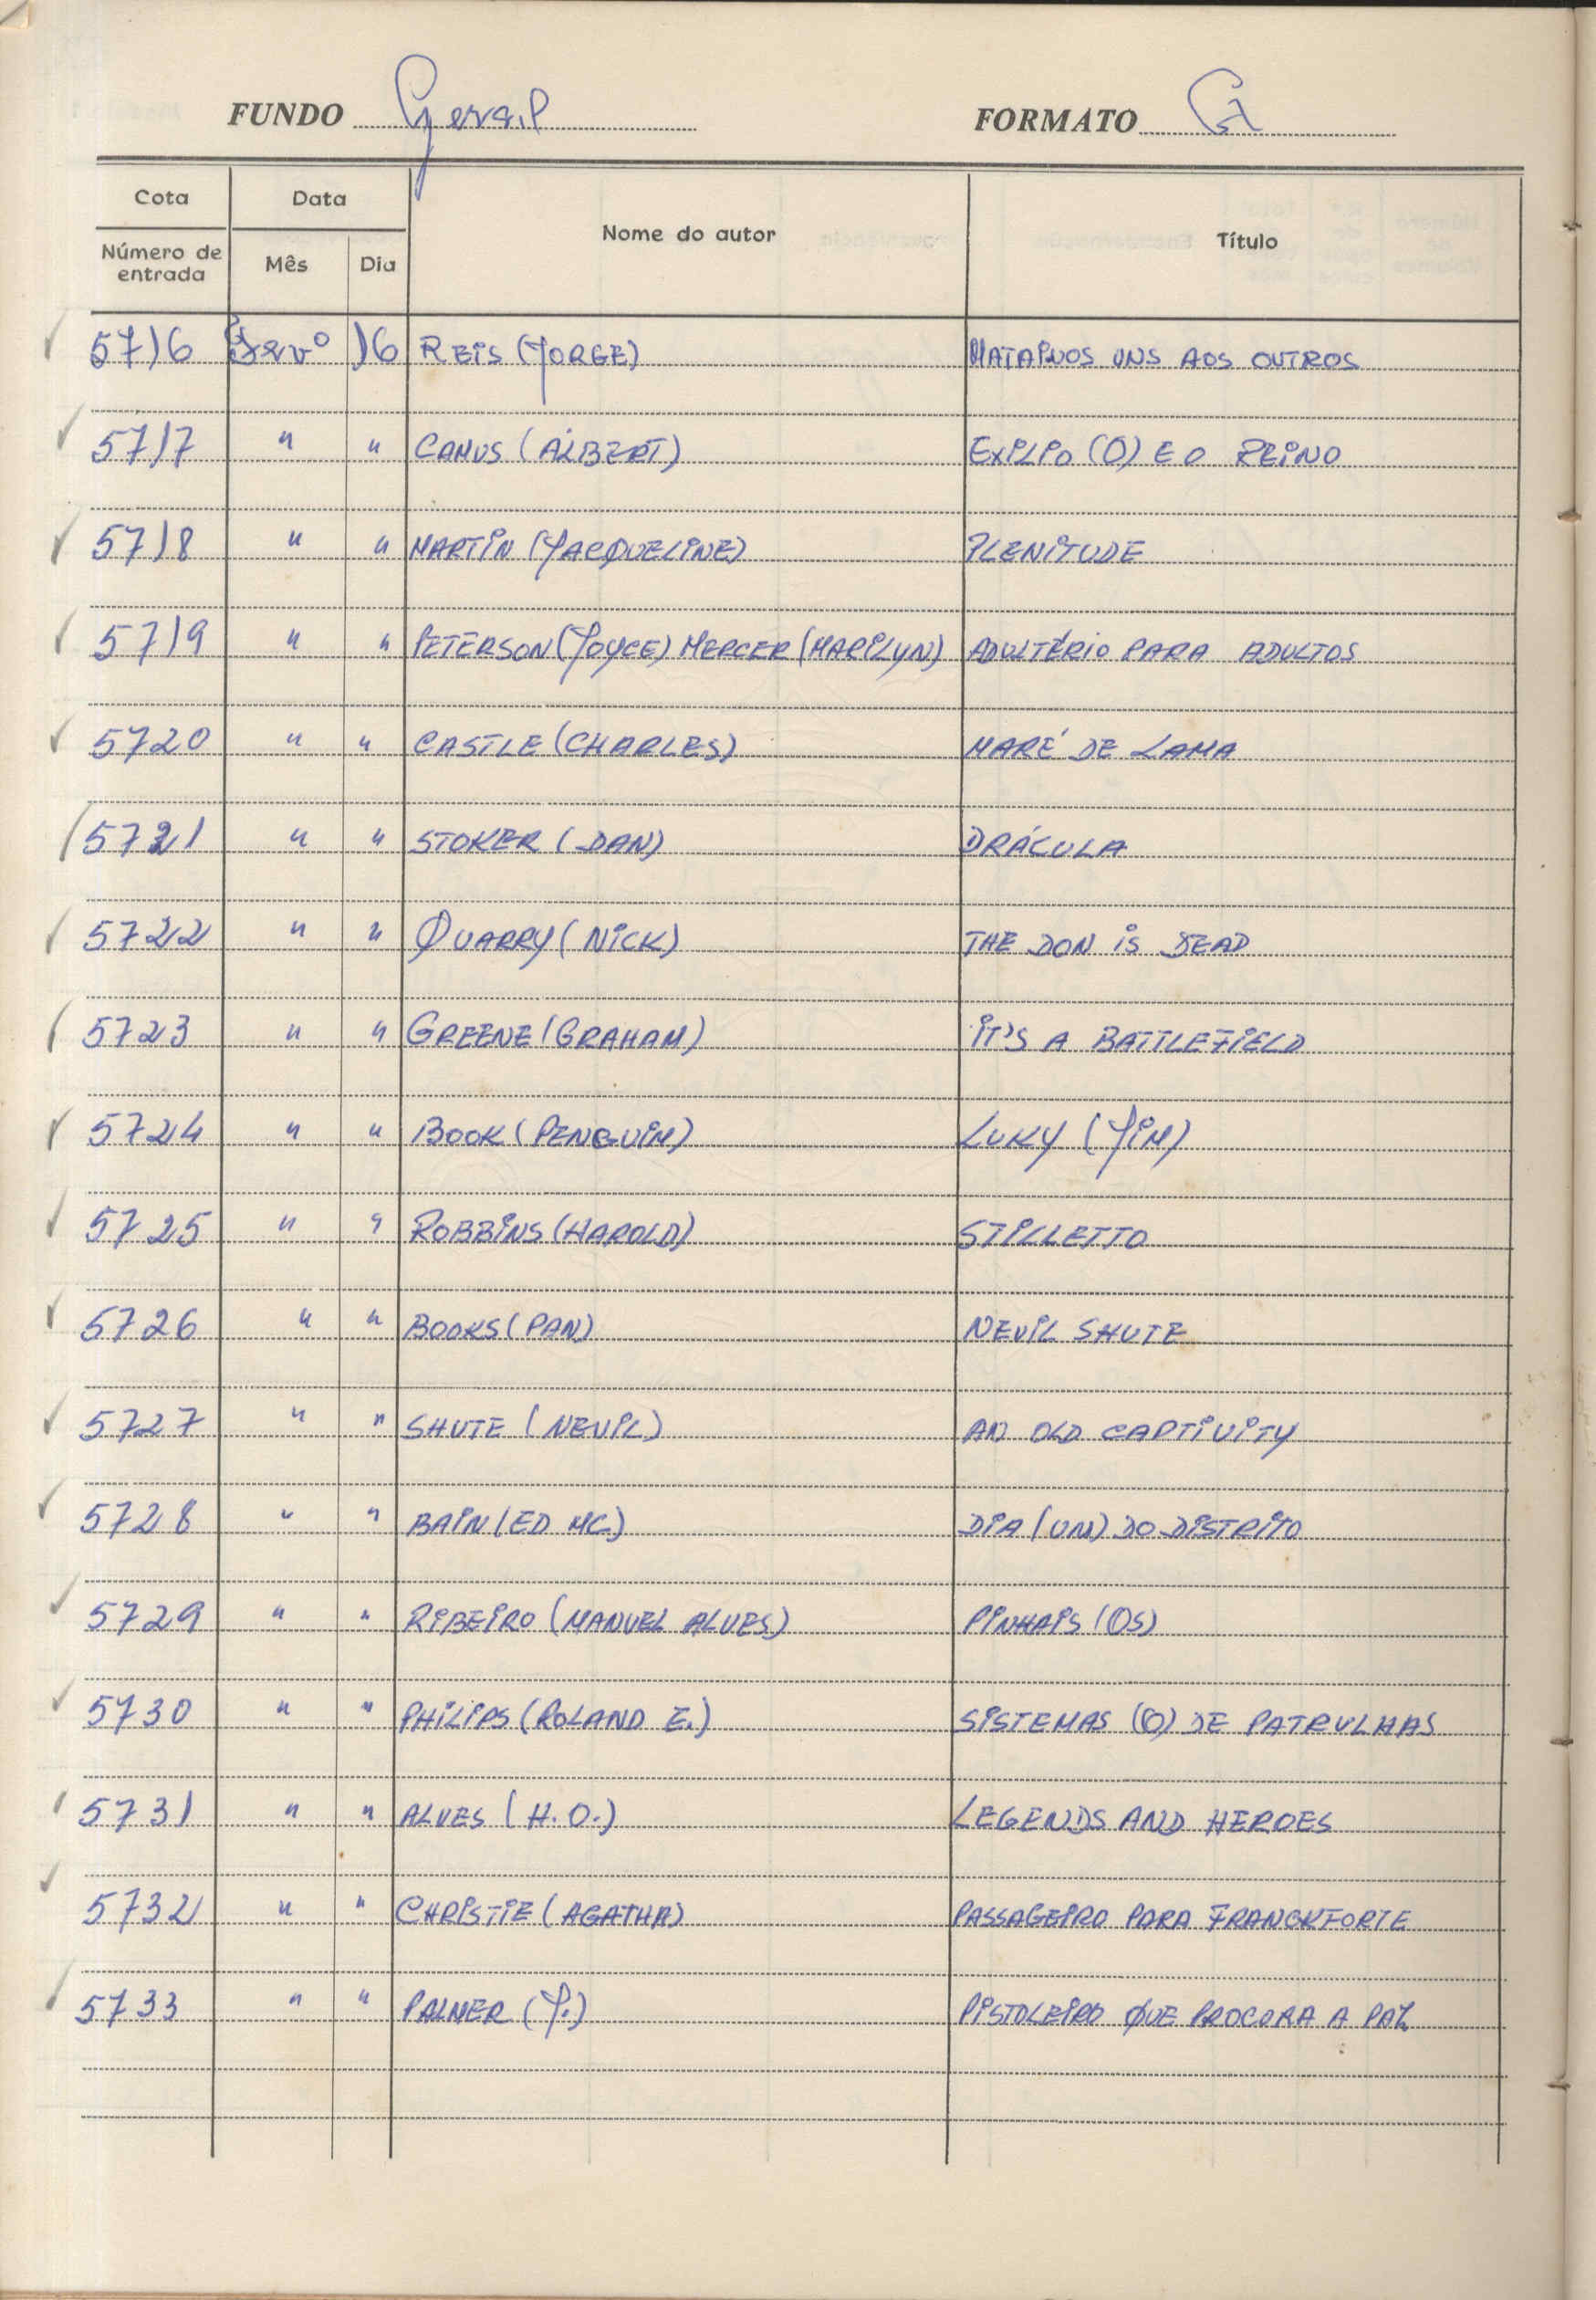 FUNDO Geral FORMATO G
Cota Data Nome do autor Título
Número de entrada Mês Dia
5716 Fevº 16 REIS (JORGE) MATAINOS UNS AOS OUTROS
5717 " " CAMUS (ALBERT) EXILIO (O) E O REINO
5718 " " MARTIN (JACQUELINE) PLENITUDE
5719 " " PETERSON (JOYCE) MERCER (MARILYN) ADULTÉRIO PARA ADULTOS
5720 " " CASTLE (CHARLES) MARÉ DE LAMA
5721 " " STOKER (DAN) DRÁCULA
5722 " " QUARRY (NICK) THE DON IS DEAD
5723 " " GREENE (GRAHAM) IT'S A BATTLEFIELD
5724 " " BOOK (PENGUIN) LUKY (JIM)
5725 " " ROBBINS (HAROLD) STILLETTO
5726 " " BOOKS (PAN) NEVIL SHUTE
5727 " " SHUTE (NEVIL) AN OLD CAPTIVITY
5728 " " BAIN (ED MC) DIA (UM) DO DISTRITO
5729 " " RIBEIRO (MANUEL ALVES) PINHAIS (OS)
5730 " " PHILIPS (ROLAND E.) SISTEMAS (O) DE PATRULHAS
5731 " " ALVES (H. O.) LEGENDS AND HEROES
5732 " " CHRISTIE (AGATHA) PASSAGEIRO PARA FRANCKFORTE
5733 " " PALMER (J.) PISTOLEIRO QUE PROCORA A PAZ